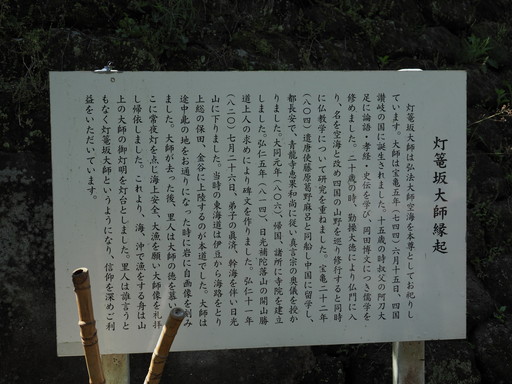 灯篭坂大師縁起
灯篭坂大師は弘法大師空海を本尊としてお祀りし
ています。大師は宝亀五年(七四四)六月十五日、四国
讃岐の国に誕生されました。十五歳の時叔父の阿刀大
足に論語・孝経・史伝を学び、岡田博文につき儒学を
修めました。二十歳の時、勤操大徳により仏門に入
り、名を空海と改め四国の山野を巡り修行すると同時
に仏教学について研究を重ねました。宝亀二十二年
(八〇四)遣唐使藤原葛野麻呂と同船し中国に留学し、
都長安で、青龍寺恵果和尚に従い真言宗の奥儀を授か
りました。大同元年(八〇六)、帰国、諸所に寺院を建立
しました。弘仁五年(八一四)、日光補陀落山の開山勝
道上人の求めにより碑文を作りました。弘仁十一年
(八二〇)七月二十六日、弟子の真済、幹海を伴い日光
山に下りました。当時の東海道は伊豆から海路をとり
上総の保田、金谷に上陸するのが本道でした。大師は
途中此の地をお通りになった時に岩に自画像を刻み
ました。大師が去った後、里人は大師の徳を慕い
ここに常夜灯を点じ海上安全、大漁を願い大師像を礼拝
し帰依しました。これより、海、沖で漁をする舟は山
上の大師の御灯明を灯台としました。里人は誰言うと
もなく灯篭坂大師というようになり、信仰を深めご利
益をいただいています。